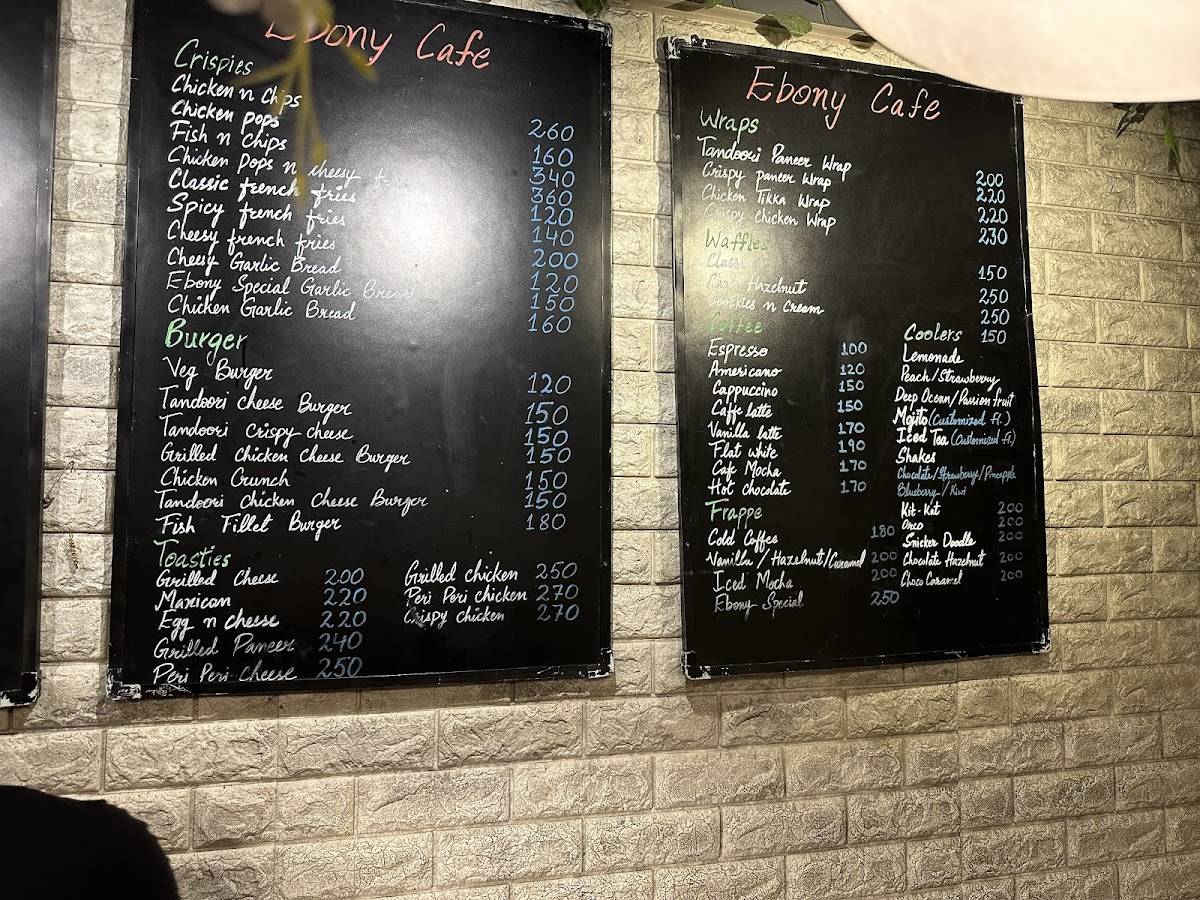 Ebony Cafe
Crispies
Chicken n Chips 260
Chicken pops 160
Fish n Chips 340
Chicken Pops n cheesy 360
Classic french fries 120
Spicy french fries 140
Cheesy french fries 200
Cheesy Garlic Bread 120
Ebony Special Garlic Bread 150
Chicken Garlic Bread 160
Burger
Veg Burger 120
Tandoori cheese Burger 150
Tandoori crispy cheese 150
Grilled chicken cheese Burger 150
Chicken Crunch 150
Tandoori chicken cheese Burger 150
Fish Fillet Burger 180
Toasties
Grilled Cheese 200
Maxican 220
Egg n cheese 220
Grilled Paneer 240
Peri Peri Cheese 250
Grilled chicken 250
Peri Peri chicken 270
Crispy chicken 270
Ebony Cafe
Wraps
Tandoori Paneer Wrap 200
Crispy paneer Wrap 220
Chicken Tikka Wrap 220
Crispy chicken Wrap 230
Waffles
150
Hazelnut 250
Cookies n cream 250
Coffee
Espresso 100
Americano 120
Cappuccino 150
Caffe latte 150
Vanilla latte 170
Flat white 190
Cafe Mocha 170
Hot chocolate 170
Frappe
Cold Coffee 180
Vanilla / Hazelnut / Caramel 200
Iced Mocha 200
Ebony Special 250
Coolers 150
Lemonade
Peach / Strawberry
Deep Ocean / Passion fruit
Mojito (Customized fl.)
Iced Tea (Customized fl.)
Shakes
Chocolate / Strawberry / Pineapple
Blueberry / Kiwi
Kit-Kat 200
Oreo 200
Snicker Doodle 200
Chocolate Hazelnut 200
Choco Caramel 200